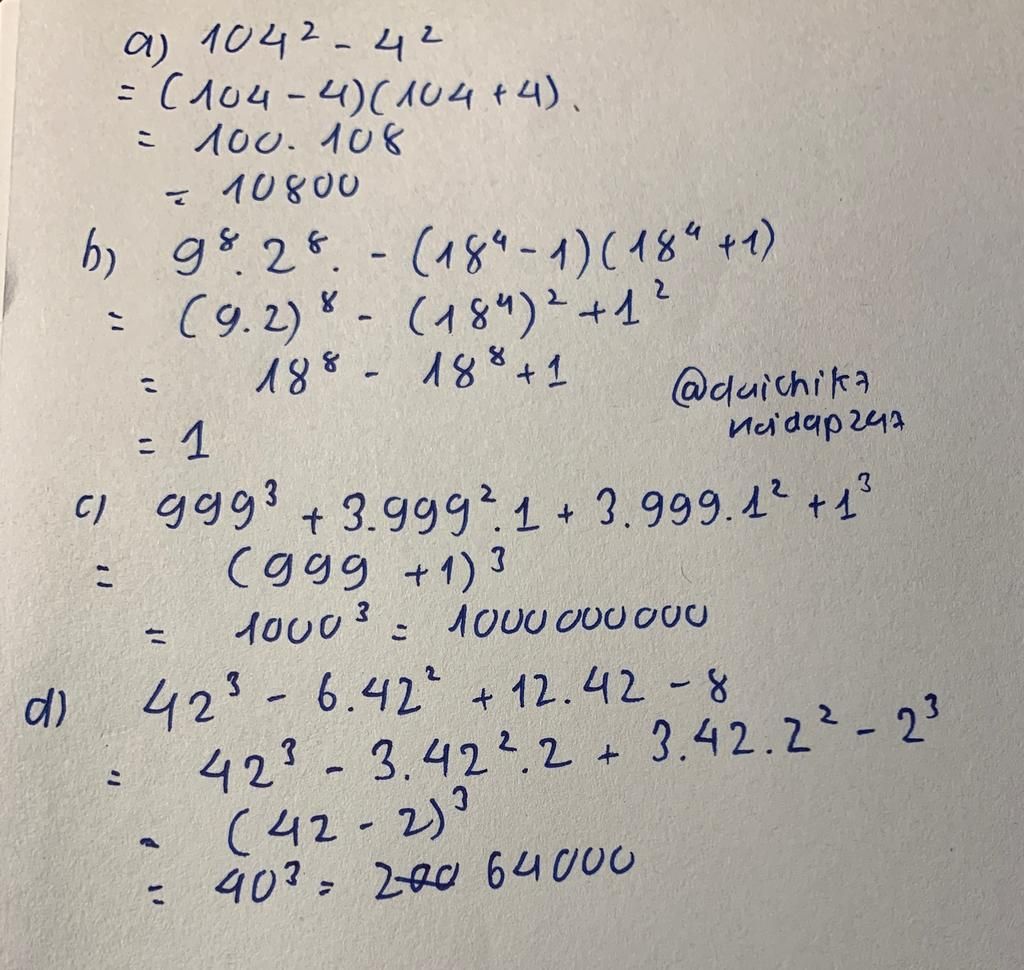 a) 104² - 4²
= (104 - 4)(104 + 4).
= 100. 108
= 10800
b) 9⁸. 2⁸. - (18⁴ - 1)(18⁴ + 1)
= (9.2)⁸ - (18⁴)² + 1²
= 18⁸ - 18⁸ + 1
= 1
@daichik7
hoidap247
c) 999³ + 3.999².1 + 3.999.1² + 1³
= (999 + 1)³
= 1000³ = 1000000000
d) 42³ - 6.42² + 12.42 - 8
= 42³ - 3.42².2 + 3.42.2² - 2³
= (42 - 2)³
= 40³ = 64000